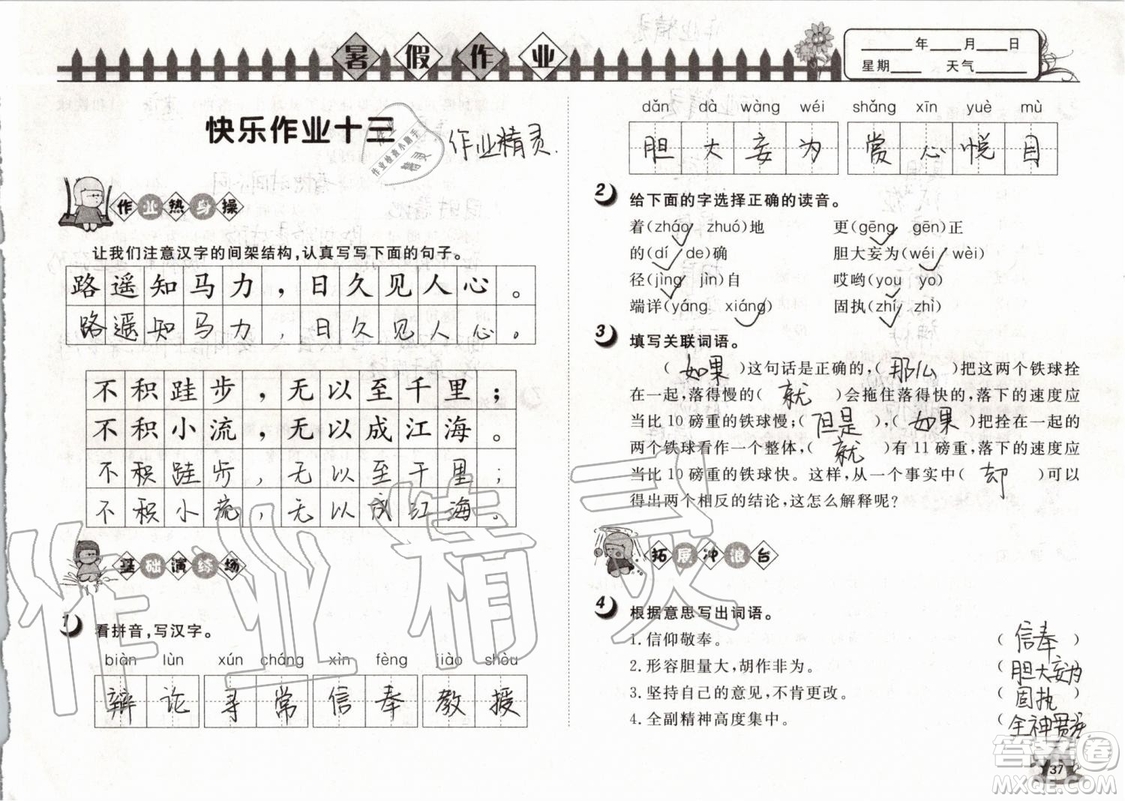 暑假作业
____年____月____日
星期____ 天气____
快乐作业十三
作业精灵
作业热身操
让我们注意汉字的间架结构,认真写写下面的句子。
路遥知马力,日久见人心。
路遥知马力,日久见人心。
不积跬步,无以至千里;
不积小流,无以成江海。
不积跬步,无以至千里;
不积小流,无以成江海。
基础演练场
1 看拼音,写汉字。
biàn lùn xún cháng xìn fèng jiào shòu
辩论 寻常 信奉 教授
dǎn dà wàng wéi shǎng xīn yuè mù
胆大妄为 赏心悦目
2 给下面的字选择正确的读音。
着(zháo zhuó)地 更(gēng gēn)正
的(dí de)确 胆大妄为(wéi wèi)
径(jìng jìn)自 哎哟(you yo)
端详(yáng xiáng) 固执(zhí zhǐ)
3 填写关联词语。
(如果)这句话是正确的,(那么)把这两个铁球拴
在一起,落得慢的(就)会拖住落得快的,落下的速度应
当比 10 磅重的铁球慢;(但是),(如果)把拴在一起的
两个铁球看作一个整体,(就)有 11 磅重,落下的速度应
当比 10 磅重的铁球快。这样,从一个事实中(却)可以
得出两个相反的结论,这怎么解释呢?
拓展冲浪台
4 根据意思写出词语。
1. 信仰敬奉。 (信奉)
2. 形容胆量大,胡作非为。 (胆大妄为)
3. 坚持自己的意见,不肯更改。 (固执)
4. 全副精神高度集中。 (全神贯注)
37
作业精灵
答案圈
MXQE.COM